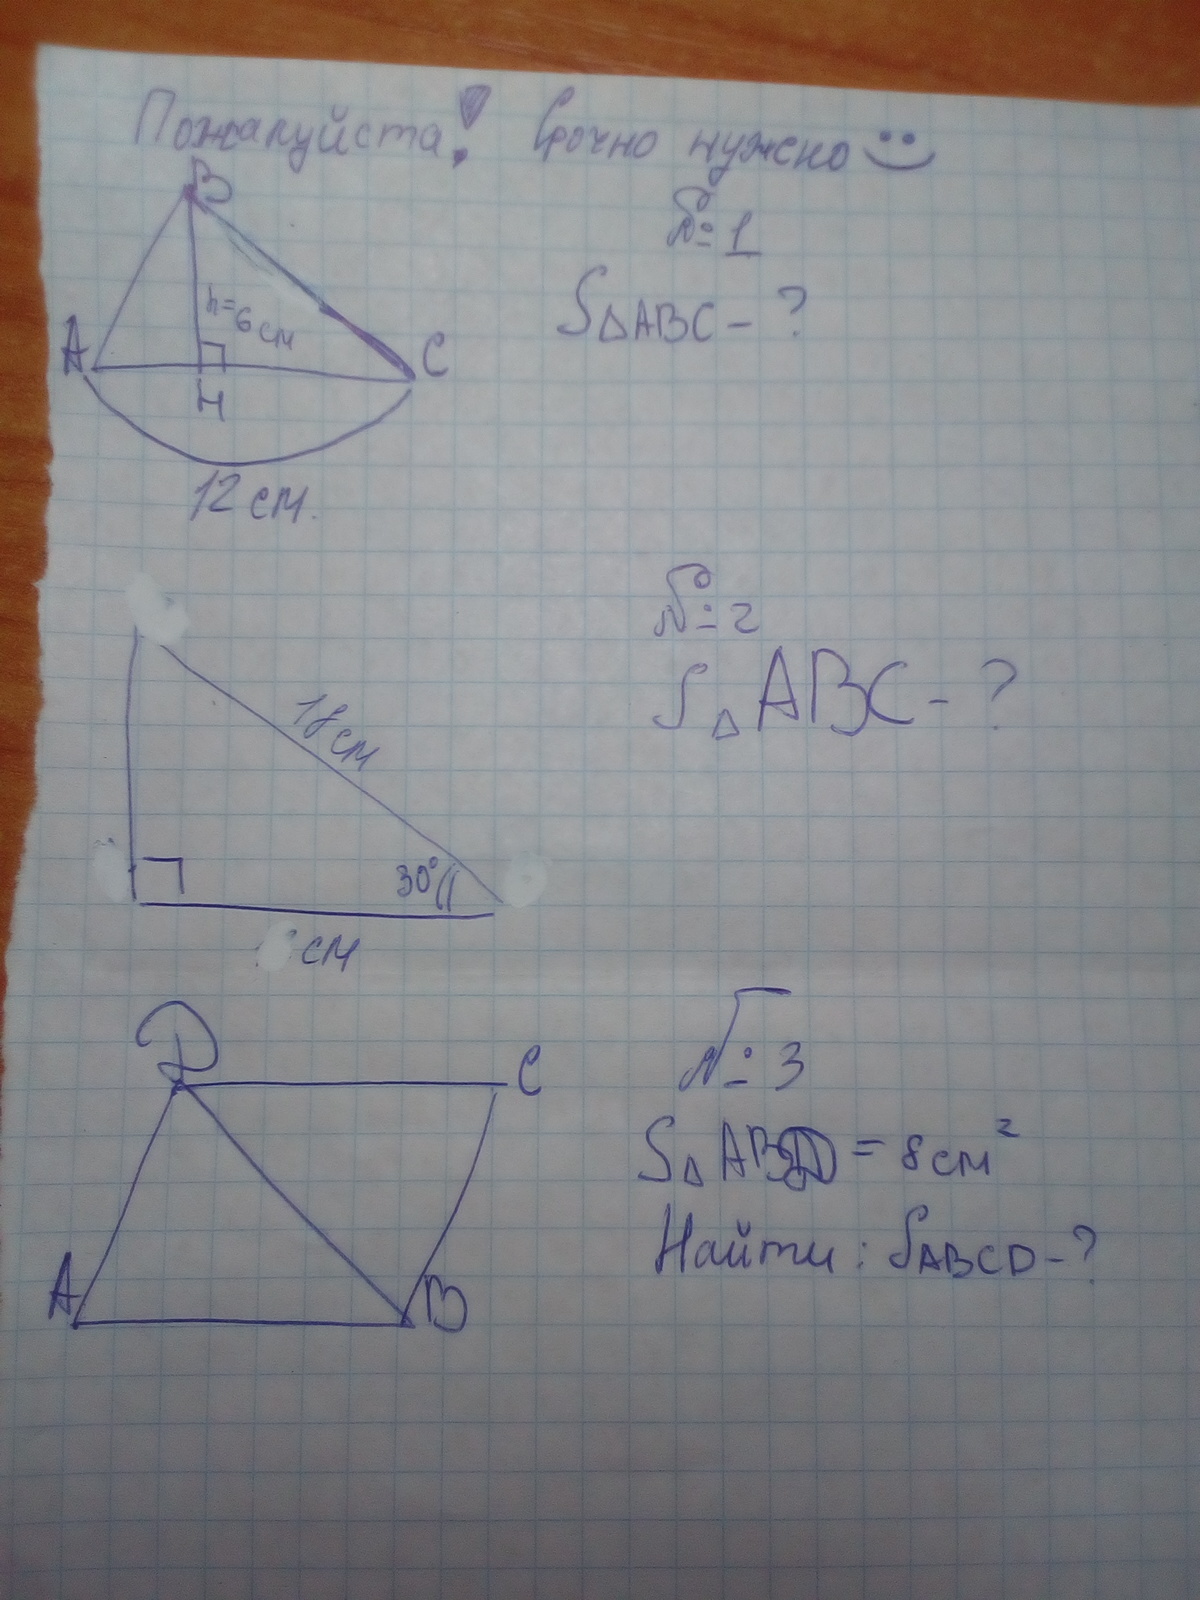 Пожалуйста! Срочно нужно
B
№1
S△ABC - ?
h=6 см
A
C
H
12 см.
№2
S△ABC - ?
18 см
30°
см
D
C
№3
S△ABD = 8 см²
Найти: SABCD - ?
A
B